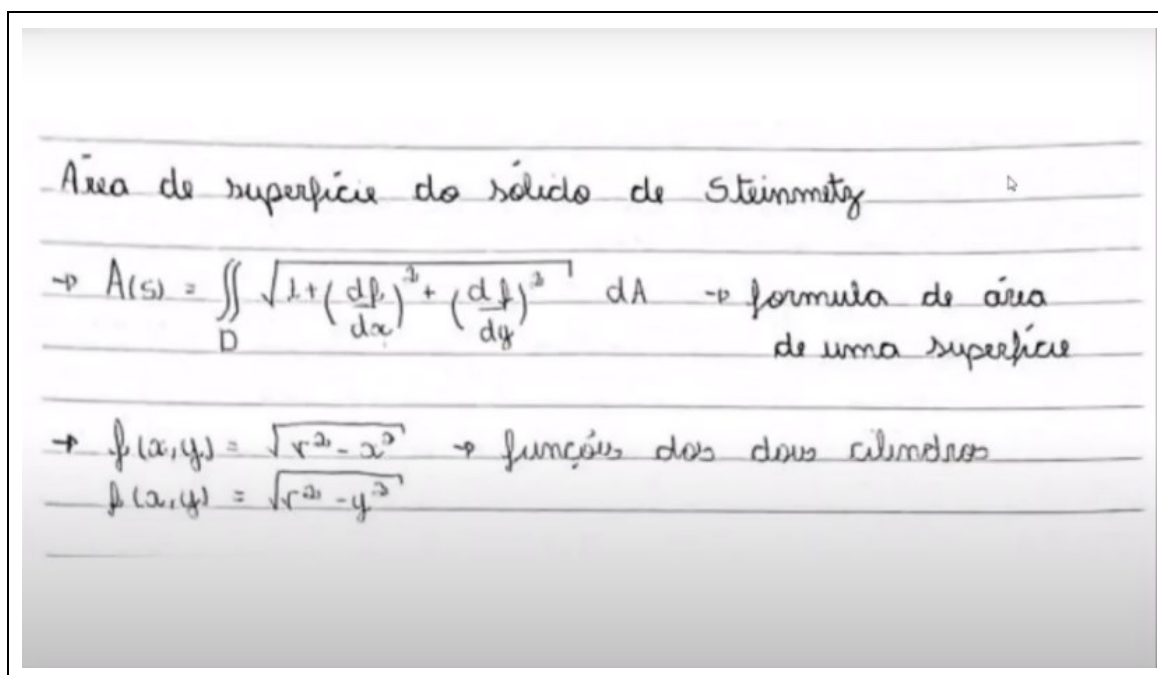 Área de superfície do sólido de Steinmetz
→ A(s) = ∬_D √(1+(df/dx)²+(df/dy)²) dA → formula de área
de uma superfície
→ f(x,y) = √(r²-x²) → funções dos dois cilindros
f(x,y) = √(r²-y²)